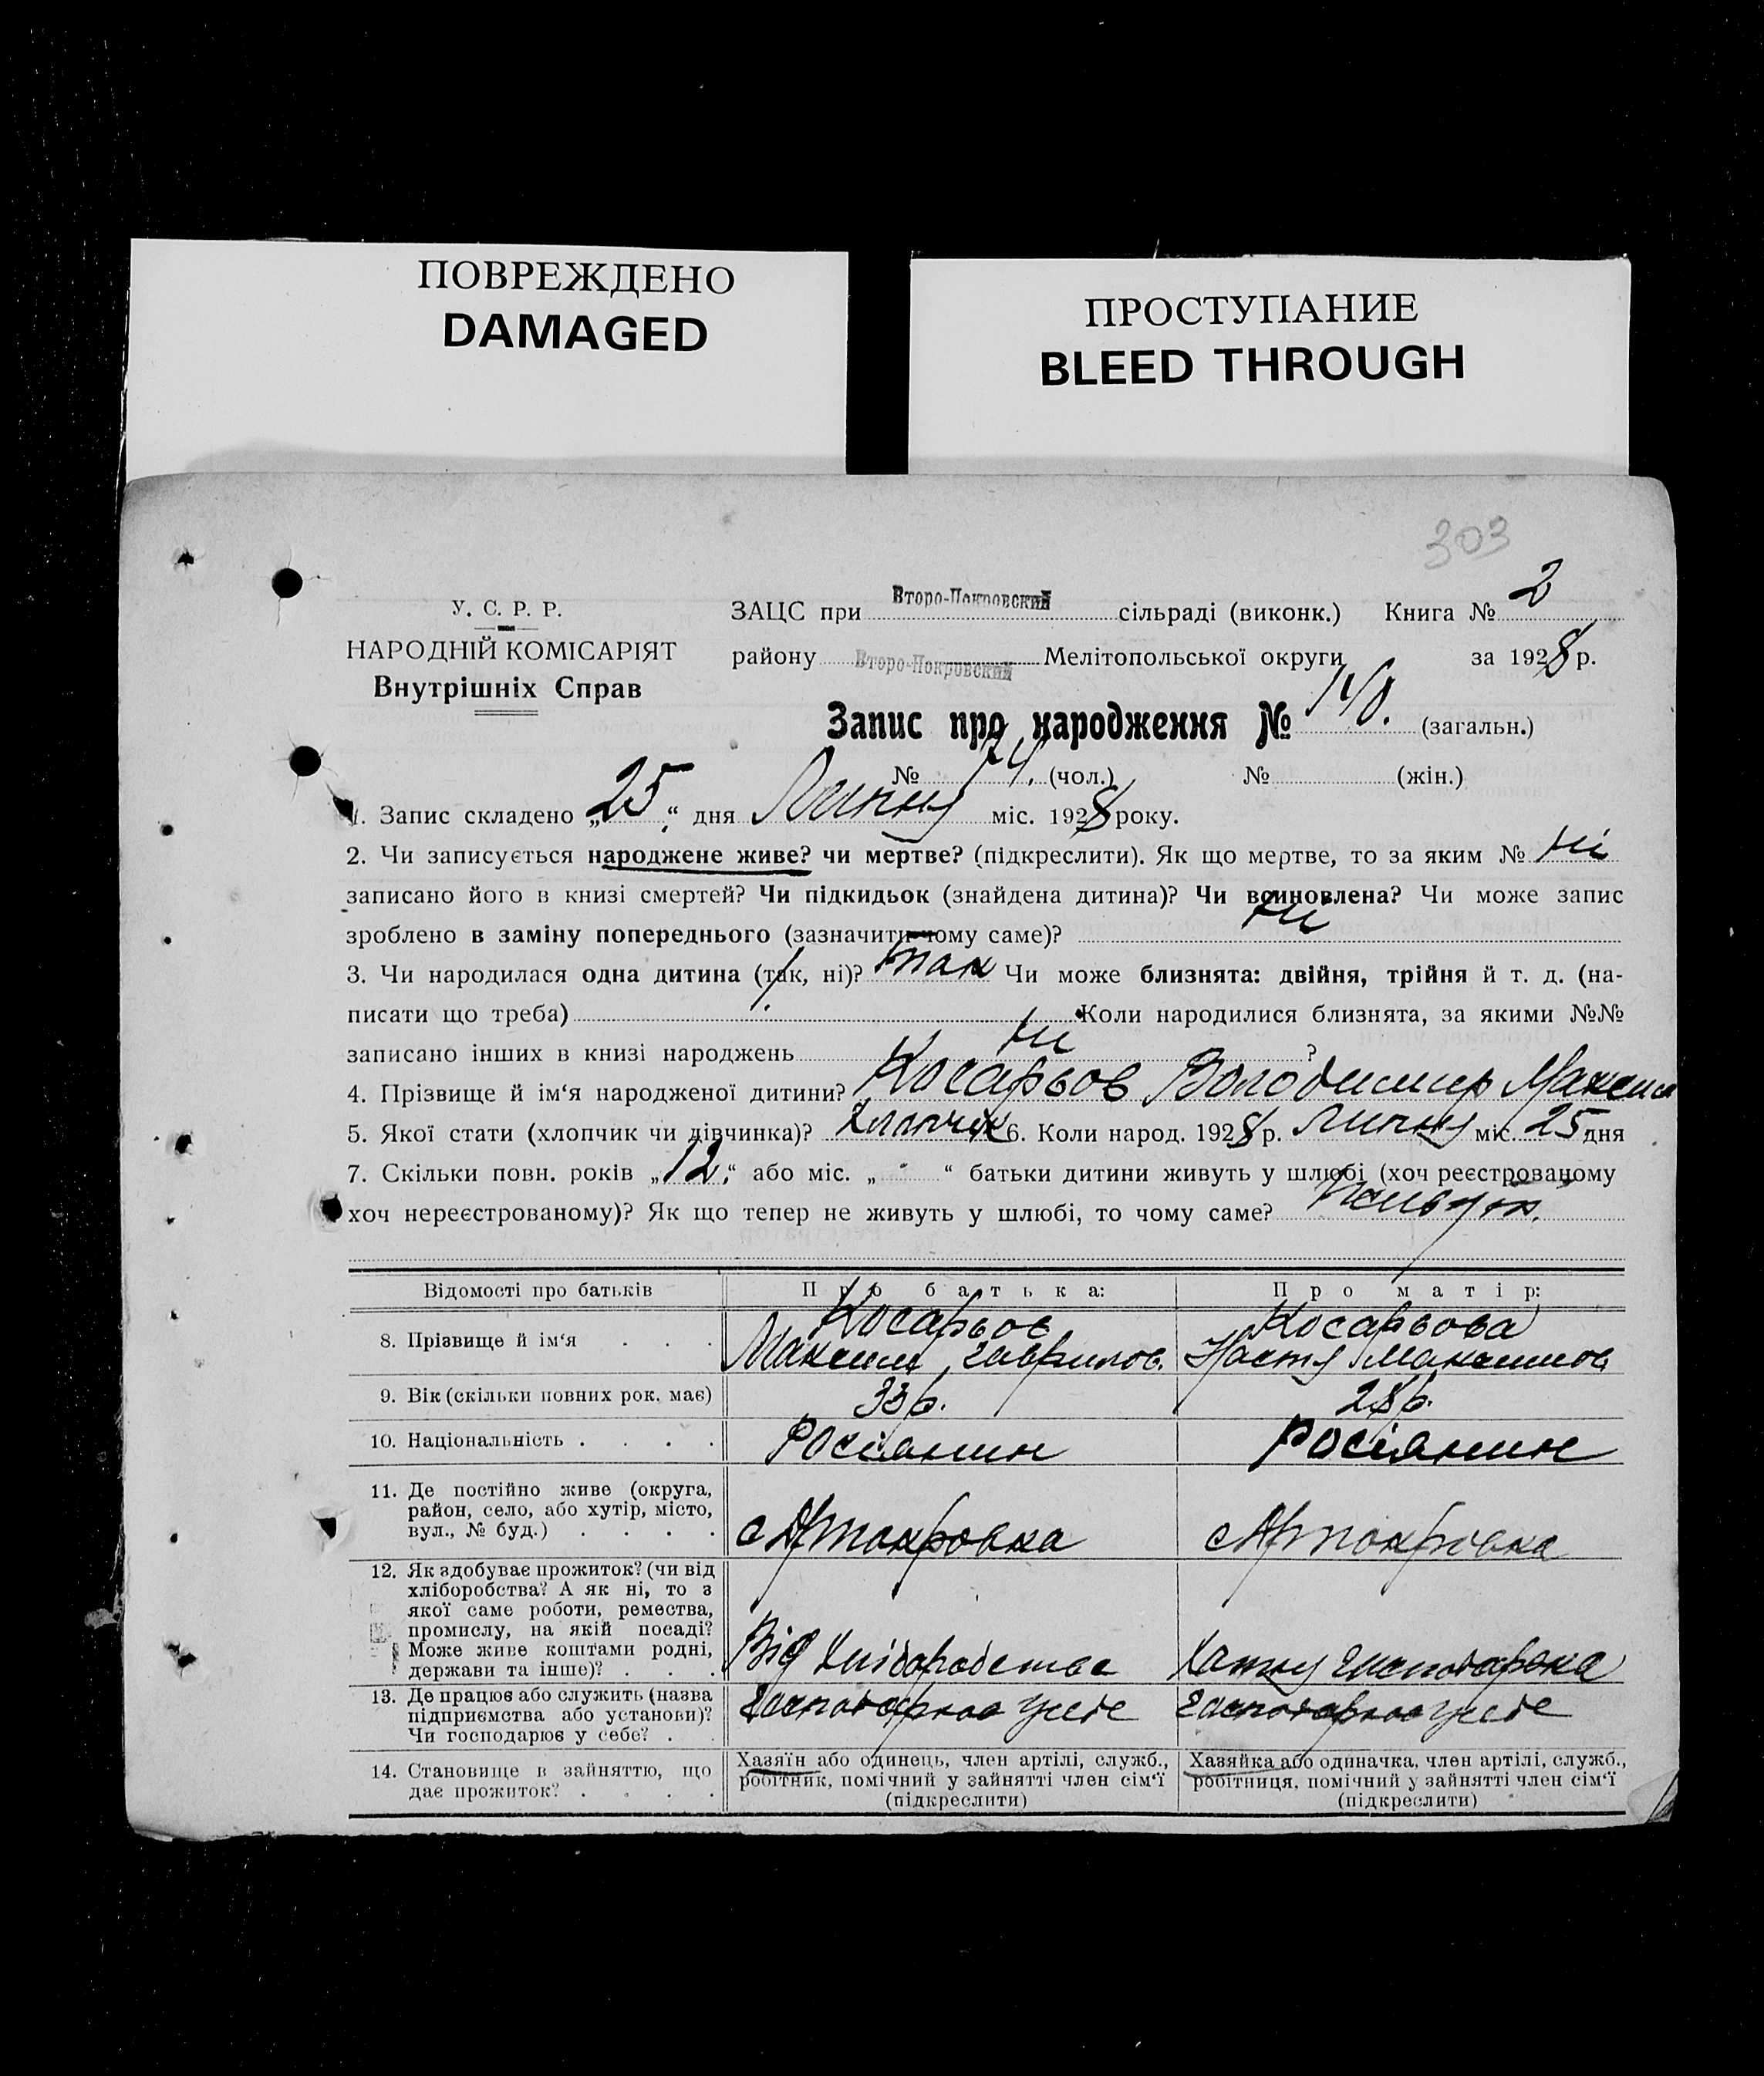 ПОВРЕЖДЕНО
DAMAGED
ПРОСТУПАНИЕ
BLEED THROUGH
303
У. С. Р. Р.
НАРОДНІЙ КОМІСАРІЯТ
Внутрішніх Справ
ЗАЦС при Второ-Покровский сільраді (виконк.) Книга № 2
району Второ-Покровский Мелітопольської округи за 1928 р.
Запис про народження № 140. (загальн.)
№ 74. (чол.) № (жін.)
1. Запис складено „25“ дня Липня міс. 1928 року.
2. Чи записується народжене живе? чи мертве? (підкреслити). Як що мертве, то за яким № ні
записано його в книзі смертей? Чи підкидьок (знайдена дитина)? Чи всиновлена? Чи може запис
зроблено в заміну попереднього (зазначити чому саме)? ні
3. Чи народилася одна дитина (так, ні)? так Чи може близнята: двійня, трійня й т. д. (на-
писати що треба) Коли народилися близнята, за якими №№
записано інших в книзі народжень ни ?
4. Прізвище й ім‘я народженої дитини? Косарьов Володимир Максим
5. Якої стати (хлопчик чи дівчинка)? Хлопчик 6. Коли народ. 1928 р. Липня міс. 25 дня
7. Скільки повн. років „12“ або міс. „ “ батьки дитини живуть у шлюбі (хоч реєстрованому
хоч нереєстрованому)? Як що тепер не живуть у шлюбі, то чому саме?
Відомості про батьків Про батька: Про матір:
8. Прізвище й ім‘я . . . Косарьов Максим Гаврилов. Косарьова Настя Максимов
9. Вік (скільки повних рок. має) 33 р. 28 р.
10. Національність . . . . Росіянин Росіянин
11. Де постійно живе (округа,
район, село, або хутір, місто,
вул., № буд.) . . . . с Артокровка с Артокровка
12. Як здобуває прожиток? (чи від
хліборобства? А як ні, то з
якої саме роботи, ремества,
промислу, на якій посаді?
Може живе коштами родні,
держави та інше)? . . . Від Хліборобства Хатну господарока
13. Де працює або служить (назва
підприємства або установи)?
Чи господарює у себе? .
14. Становище в зайняттю, що
дає прожиток? . . . .
Хазяїн або одинець, член артілі, служб.,
робітник, помічний у зайнятті член сім‘ї
(підкреслити)
Хазяйка або одиначка, член артілі, служб.,
робітниця, помічний у зайнятті член сім‘ї
(підкреслити)